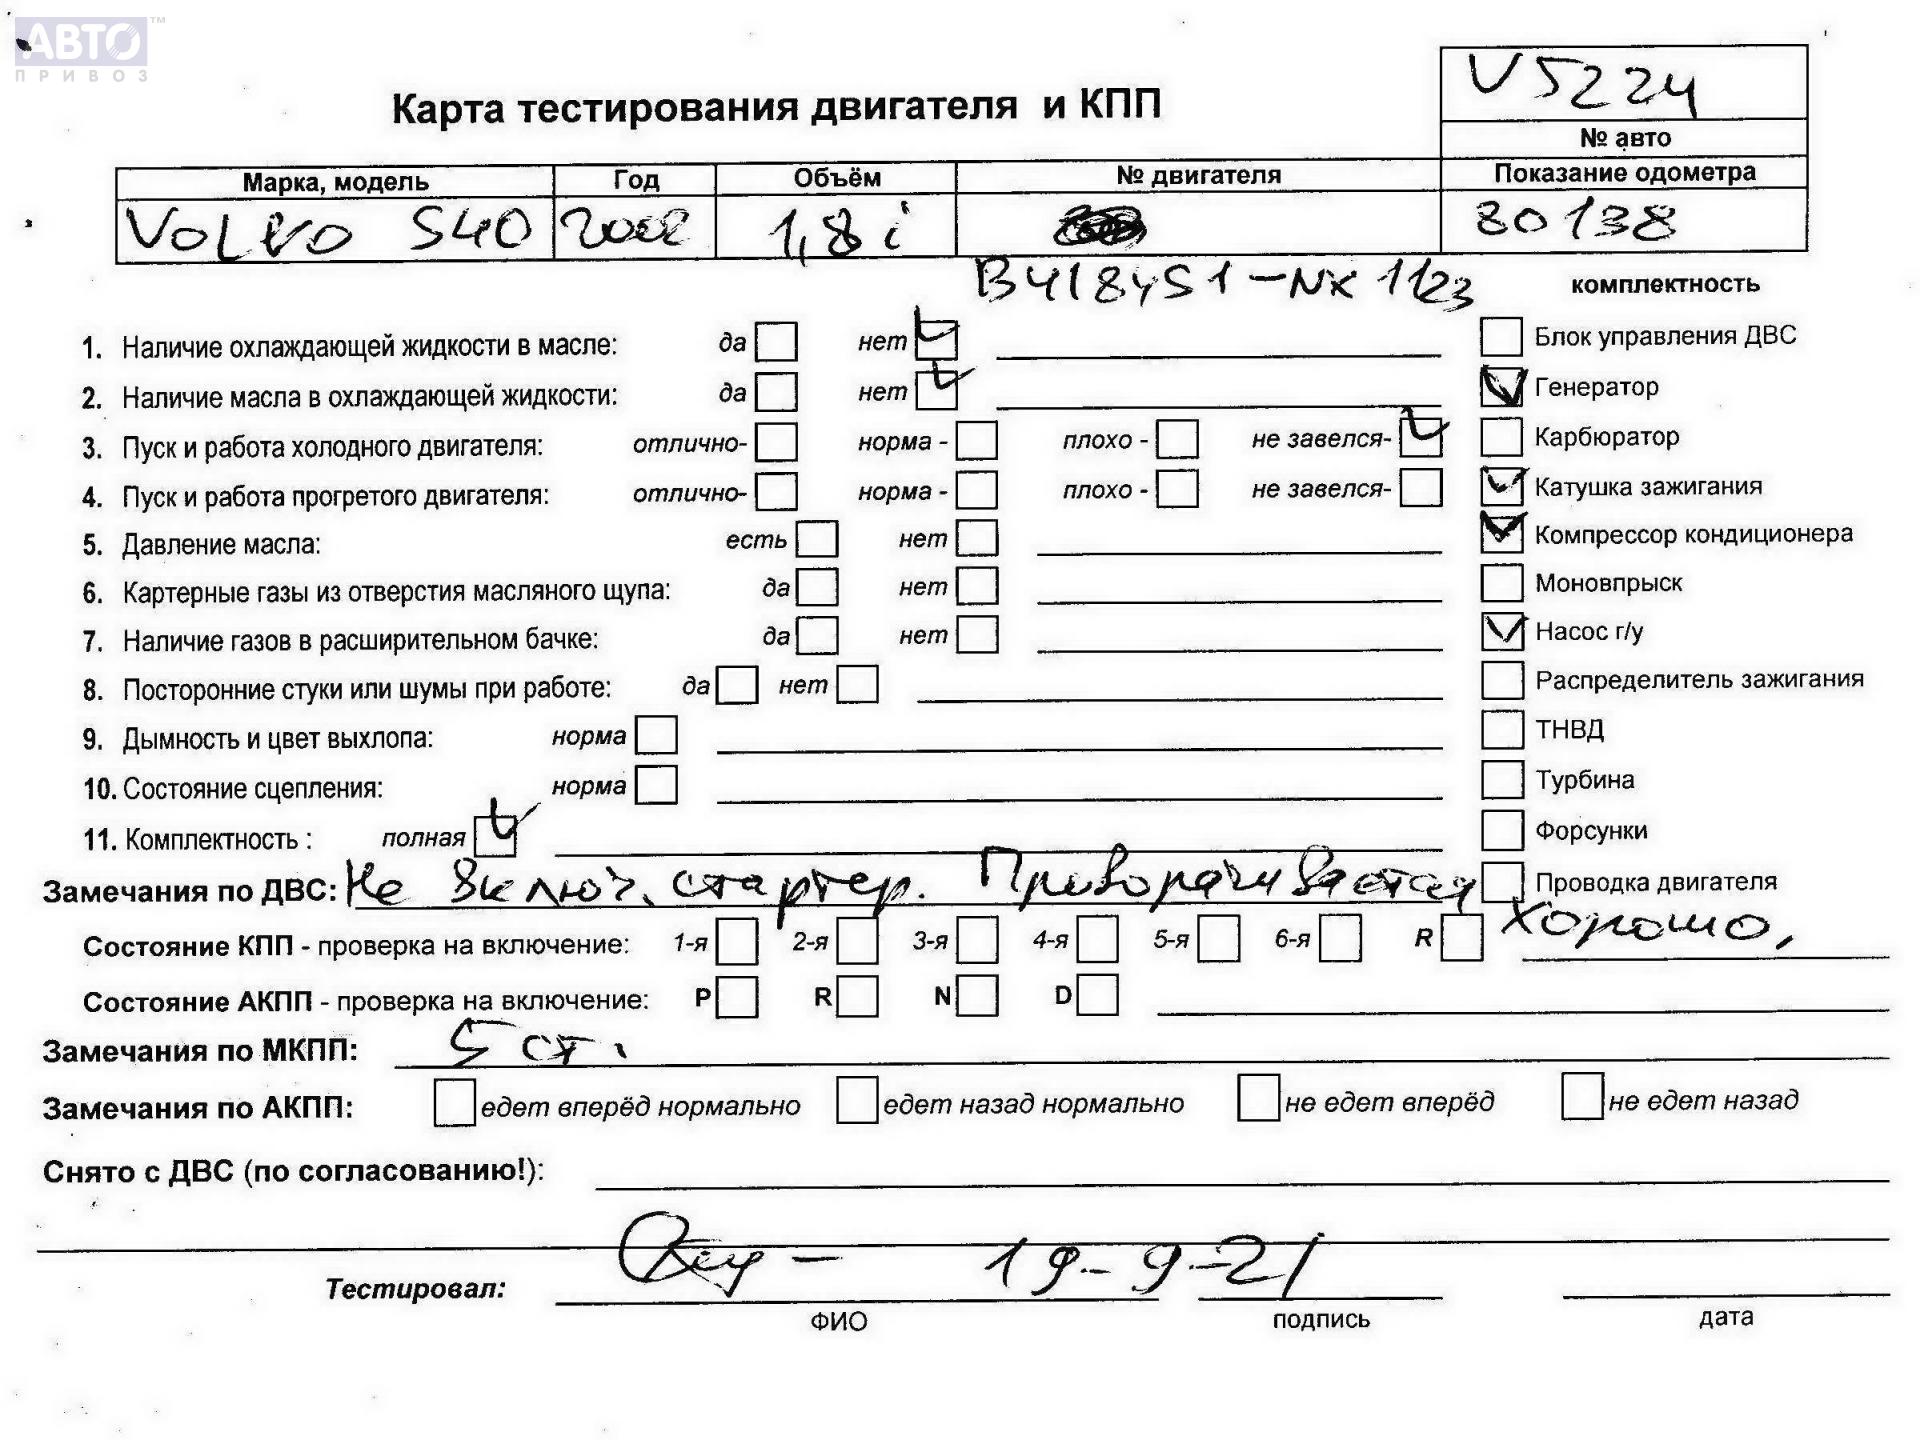 АВТО™
ПРИВОЗ
V5224
Карта тестирования двигателя и КПП
№ авто
Марка, модель Год Объём № двигателя Показание одометра
VOLVO S40 2002 1,8 i 80138
B4184S1-NX 1123 комплектность
1. Наличие охлаждающей жидкости в масле: да нет Блок управления ДВС
2. Наличие масла в охлаждающей жидкости: да нет Генератор
3. Пуск и работа холодного двигателя: отлично- норма - плохо - не завелся- Карбюратор
4. Пуск и работа прогретого двигателя: отлично- норма - плохо - не завелся- Катушка зажигания
5. Давление масла: есть нет Компрессор кондиционера
6. Картерные газы из отверстия масляного щупа: да нет Моновпрыск
7. Наличие газов в расширительном бачке: да нет Насос г/у
8. Посторонние стуки или шумы при работе: да нет Распределитель зажигания
9. Дымность и цвет выхлопа: норма ТНВД
10. Состояние сцепления: норма Турбина
11. Комплектность : полная Форсунки
Замечания по ДВС: Не включ. стартер. Проворачивается Проводка двигателя
хорошо.
Состояние КПП - проверка на включение: 1-я 2-я 3-я 4-я 5-я 6-я R
Состояние АКПП - проверка на включение: P R N D
Замечания по МКПП: 5 ст.
Замечания по АКПП: едет вперёд нормально едет назад нормально не едет вперёд не едет назад
Снято с ДВС (по согласованию!):
19-9-21
Тестировал:
ФИО подпись дата